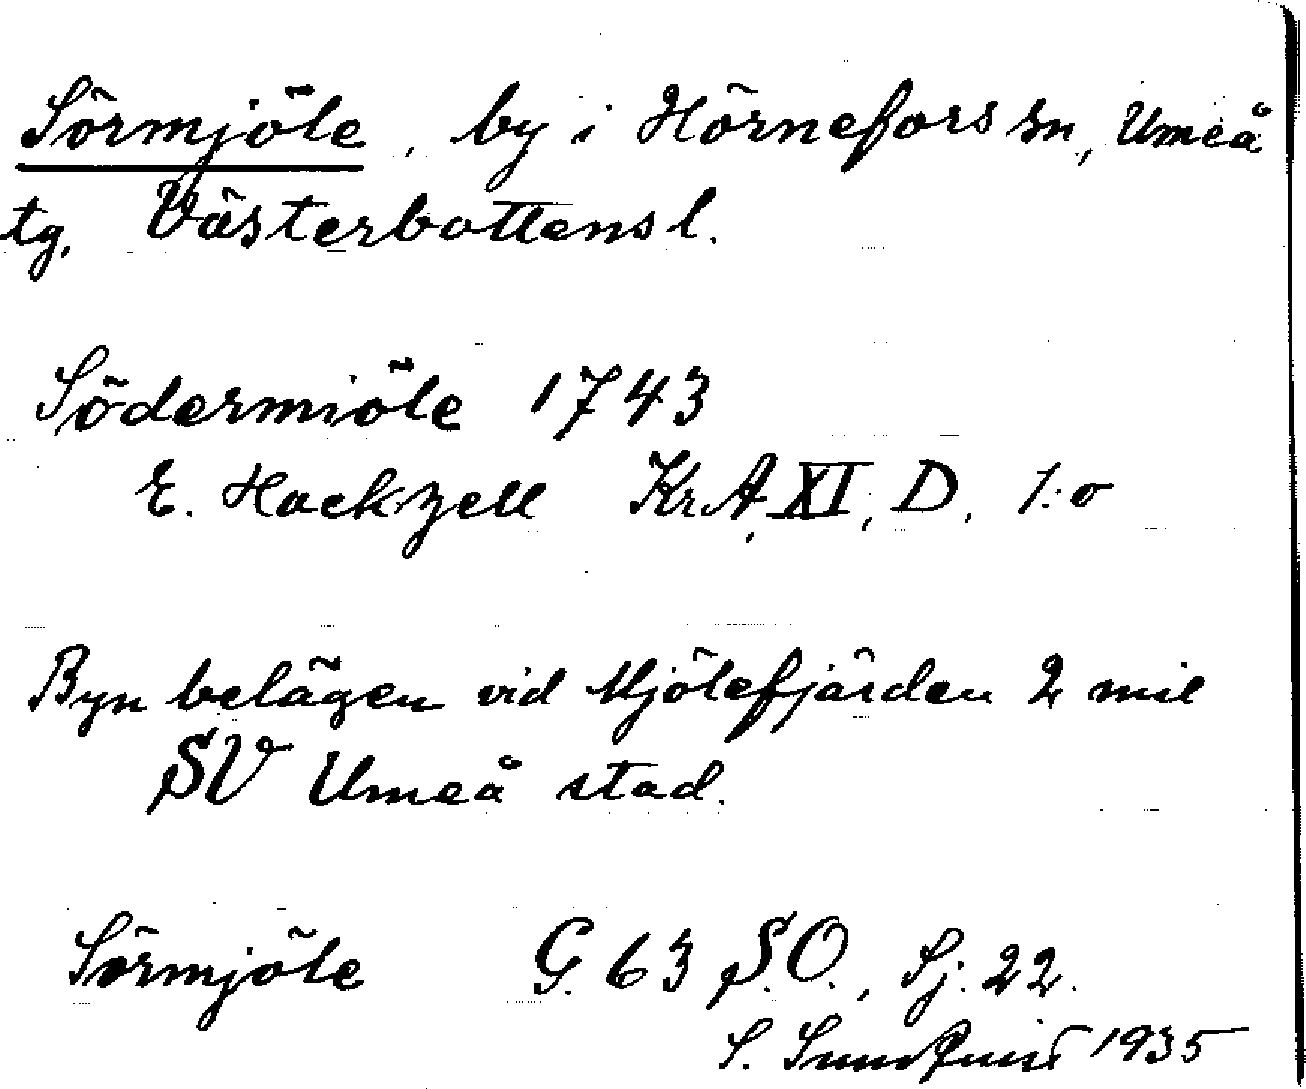 Sörmjöle, by i Hörnefors sn, Umeå
tg, Västerbottens l.
Södermiöle 1743
E. Hackzell KrA, XI, D, 1:o
Byn belägen vid Mjölefjärden 2 mil
SV Umeå stad.
Sörmjöle G. 63 S.O., Sj. 22.
S. Sundquist 1935